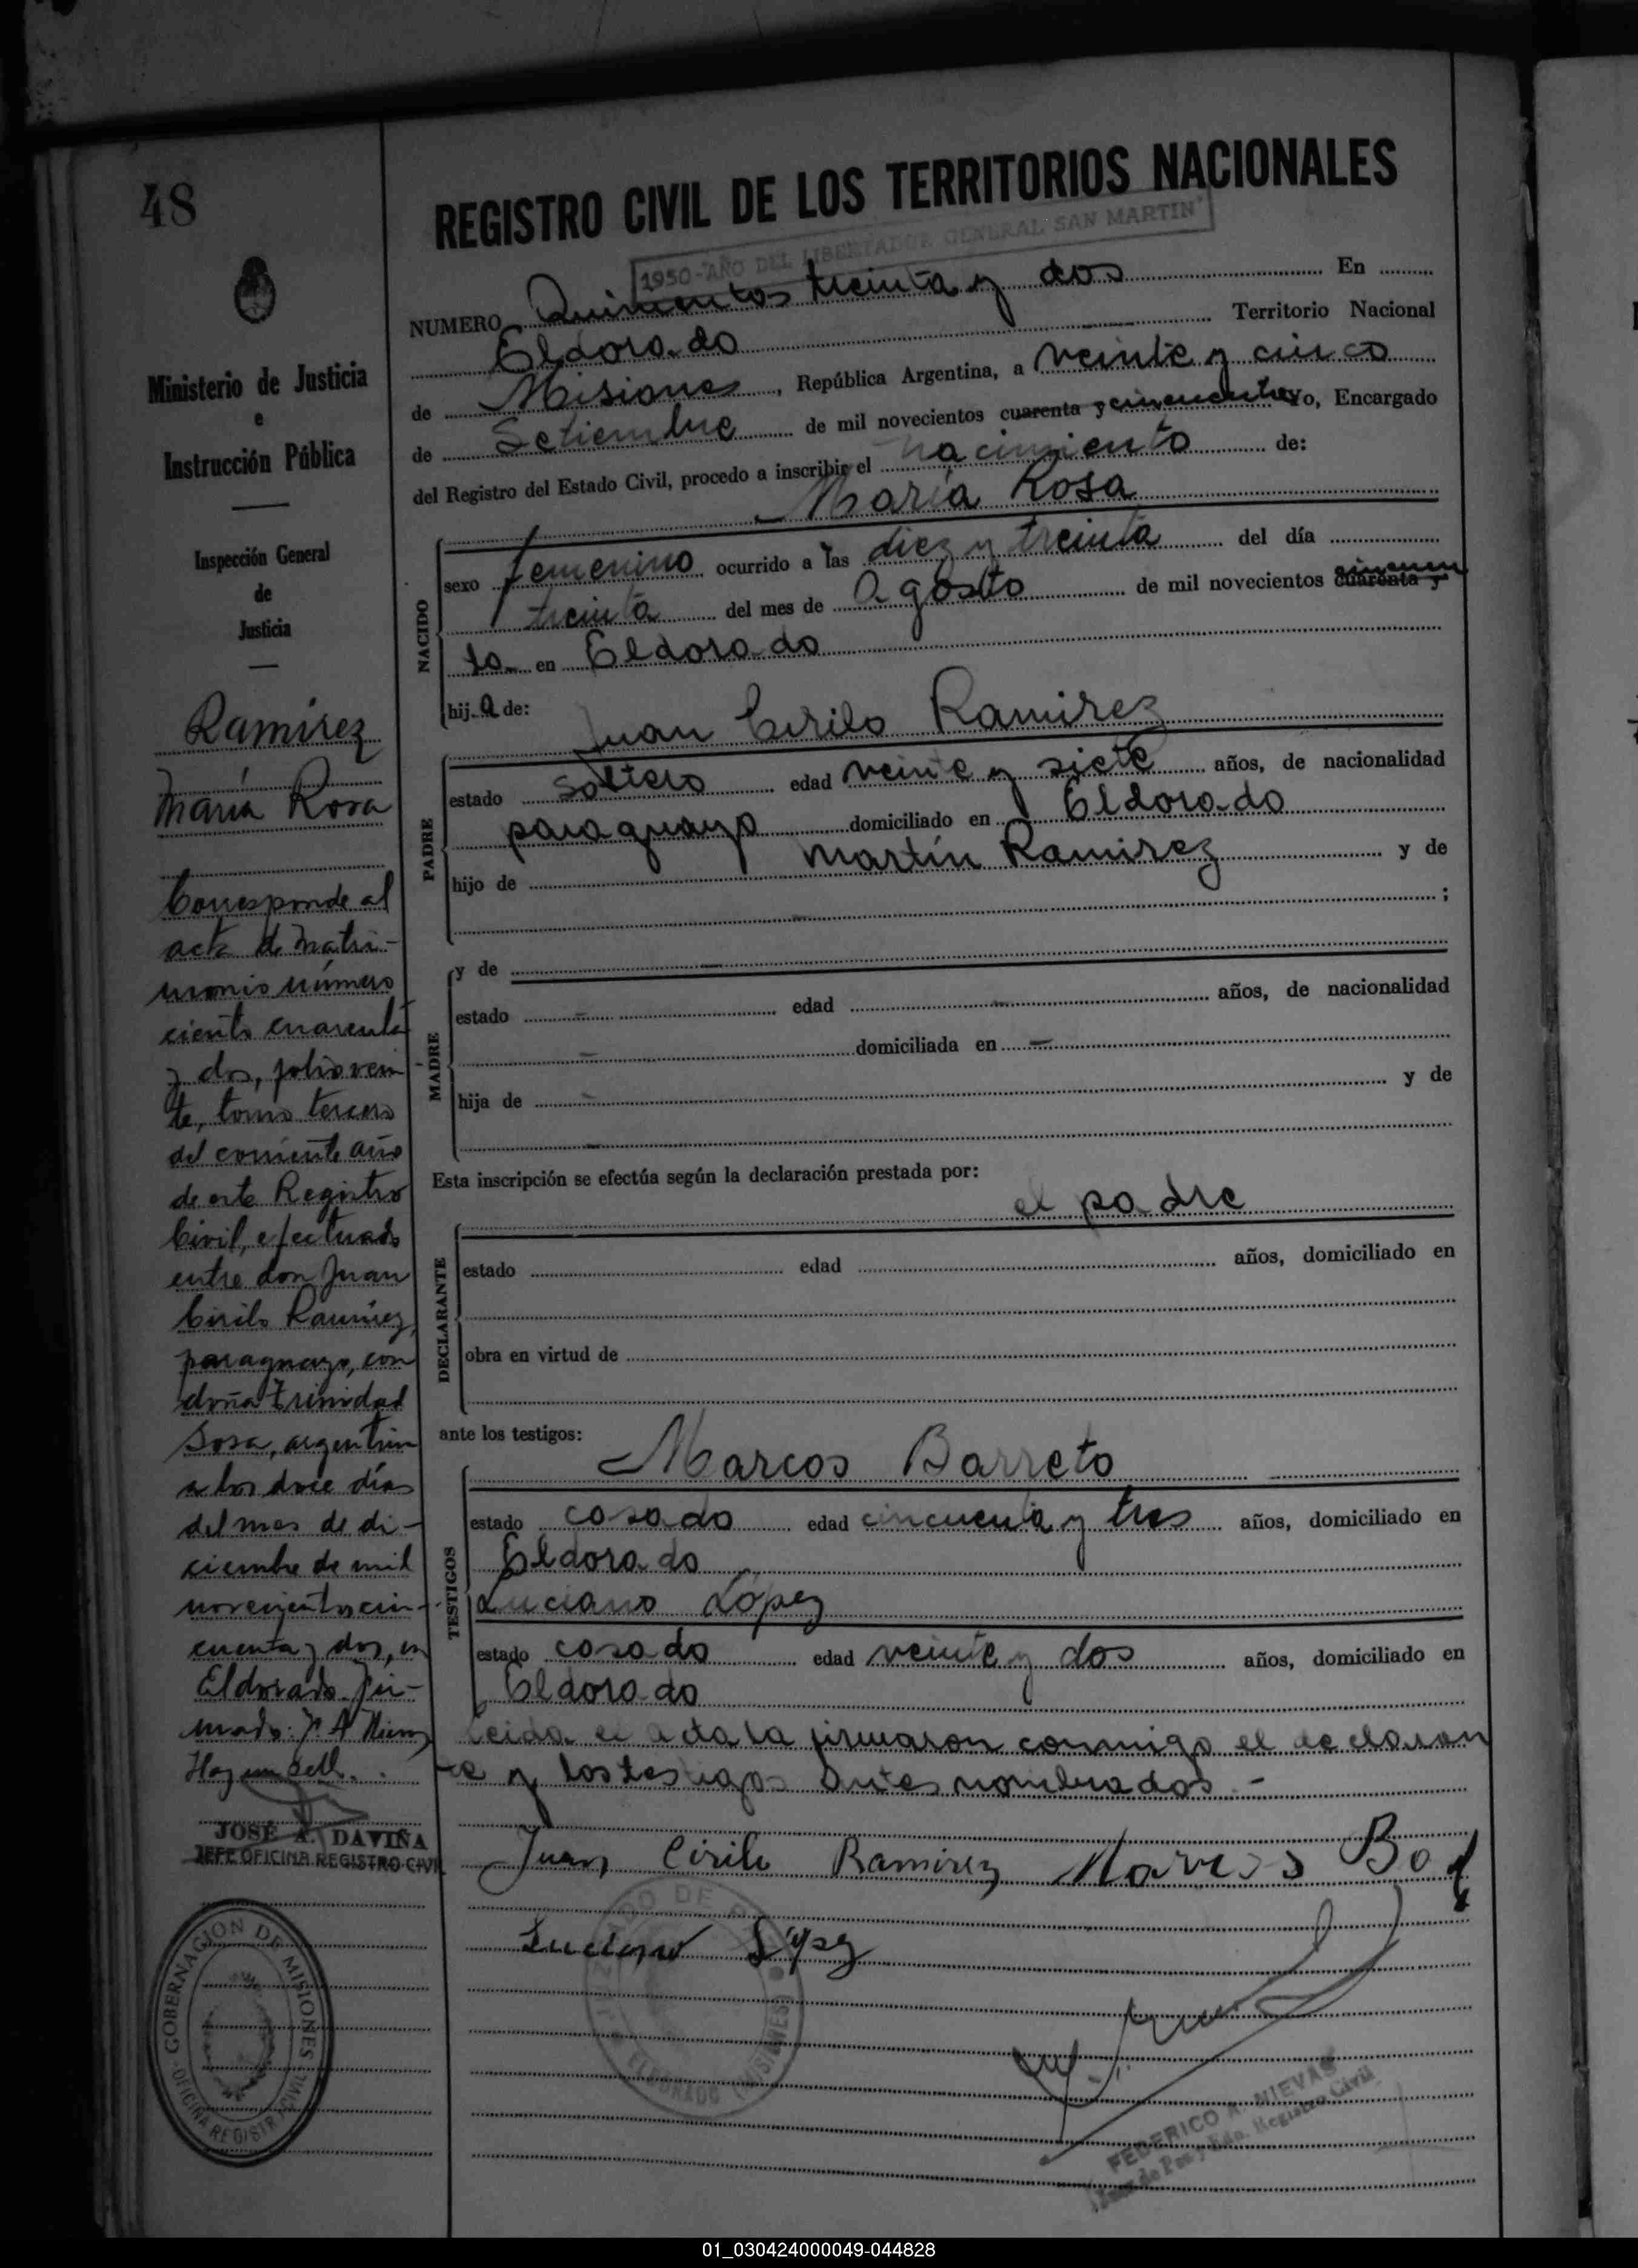 48
Ministerio de Justicia
e
Instrucción Pública
Inspección General
de
Justicia
Ramírez
María Rosa
Corresponde al
acta de matri-
monio número
ciento cuarenta
y dos, folio vein
te, tomo tercero
del corriente año
de este Registro
Civil, efectuado
entre don Juan
Cirilo Ramírez,
paraguayo, con
doña Trinidad
Sosa, argentina
a los doce días
del mes de di-
ciembre de mil
novecientos cin-
cuenta y dos, en
Eldorado. Fir-
mado: F. A. Nievas
Hay un sello.
JOSÉ A. DAVIÑA
JEFE OFICINA REGISTRO CIVIL
GOBERNACION DE MISIONES
OFICINA REGISTRO CIVIL
REGISTRO CIVIL DE LOS TERRITORIOS NACIONALES
1950-"AÑO DEL LIBERTADOR GENERAL SAN MARTIN"
NUMERO Quinientos treinta y dos En
Eldorado Territorio Nacional
de Misiones, República Argentina, a veinte y cinco
de Setiembre de mil novecientos cuarenta y cincuenta Yo, Encargado
del Registro del Estado Civil, procedo a inscribir el nacimiento de:
María Rosa
NACIDO
sexo femenino ocurrido a las diez y treinta del día
treinta del mes de Agosto de mil novecientos cuarenta y cincuen
ta en Eldorado
hija de:
Juan Cirilo Ramirez
PADRE
estado soltero edad veinte y siete años, de nacionalidad
paraguayo domiciliado en Eldorado
hijo de Martín Ramirez y de
– ;
y de –
MADRE
estado – edad – años, de nacionalidad
– domiciliada en –
hija de – y de
–
Esta inscripción se efectúa según la declaración prestada por:
el padre
DECLARANTE
estado edad años, domiciliado en
obra en virtud de
ante los testigos:
Marcos Barreto
TESTIGOS
estado casado edad cincuenta y tres años, domiciliado en
Eldorado
Luciano López
estado casado edad veinte y dos años, domiciliado en
Eldorado
Leida el acta la firmaron conmigo el declaran
te y los testigos antes nombrados.-
Juan Cirilo Ramirez Marcos
Luciano López
JUZGADO DE PAZ
ELDORADO (MISIONES)
FEDERICO A. NIEVAS
Juez de Paz y Edo. Registro Civil
01_030424000049-044828